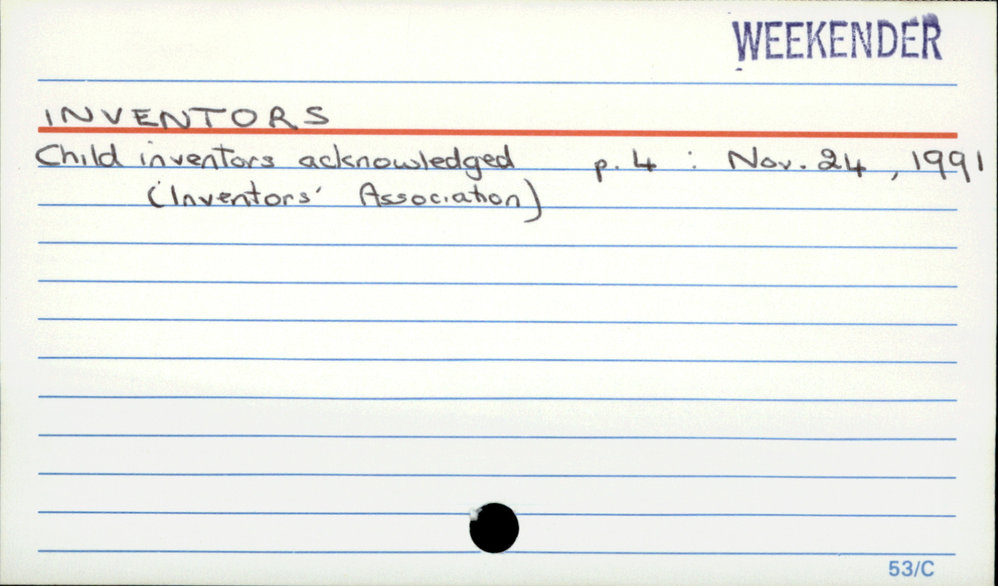 WEEKENDER
INVENTORS
Child inventors acknowledged p. 4 : Nov. 24, 1991
(Inventors' Association)
53/C